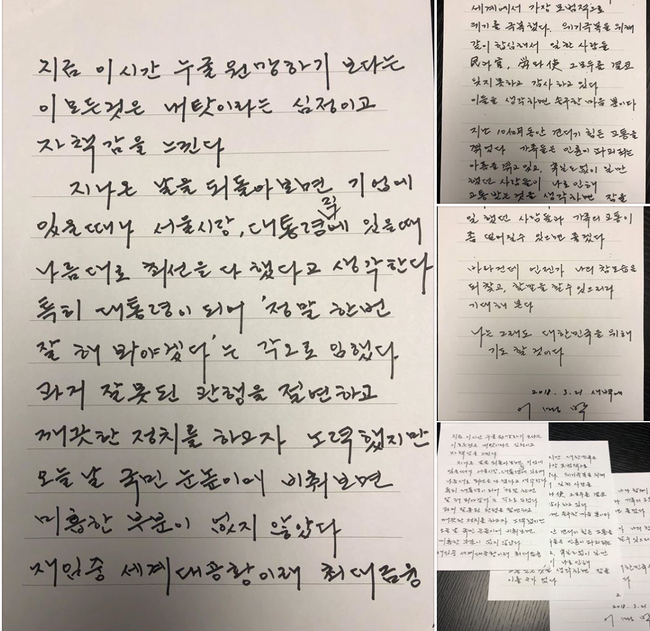 지금 이시간 누굴 원망하기 보다는
이 모든것은 내탓이라는 심정이고
자책감을 느낀다
지나온 날을 되돌아보면 기업에
있을때나 서울시장, 대통령직에 있을때
나름대로 최선을 다 했다고 생각한다
특히 대통령이 되어 '정말 한번
잘 해 봐야겠다'는 각오로 임했다
과거 잘못된 관행을 절연하고
깨끗한 정치를 하고자 노력했지만
오늘 날 국민 눈높이에 비춰보면
미흡한 부분이 없지 않았다
재임중 세계대공황이래 최대금융
세계에서 가장 모범적으로
위기를 극복했다. 위기극복을 위해
같이 합심해서 일한 사람들
民과 官, 勞와 使 그 모두를 결코
잊지못하고 감사하고 있다
이들을 생각하면 송구한 마음 뿐이다
지난 10개월동안 견디기 힘든 고통을
겪었다 가족들은 인륜이 파괴되는
아픔을 겪고 있고, 휴일도 없이 일만
했던 사람들이 나로 인해
고통받는 것을 생각하면 잠을
일 했던 사람들과 가족의 고통이
좀 덜어질수 있다면 좋겠다
바라건데 언젠가 나의 참모습을
되 찾고, 할말을 할 수 있으리라
기대해 본다
나는 그래도 대한민국을 위해
기도 할 것이다
2018. 3. 21 새벽에
이명박